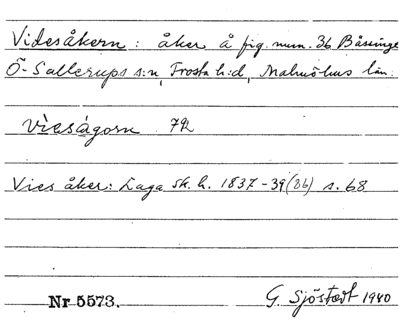 Videsåkern: åker å fig. num. 36 Båssinge
Ö. Sallerups s:n, Frosta h:d, Malmöhus län.
vìesågorn 72
Vies åker: Laga sk. h. 1837-39 (86) s. 68
Nr 5573. G. Sjöstedt 1940